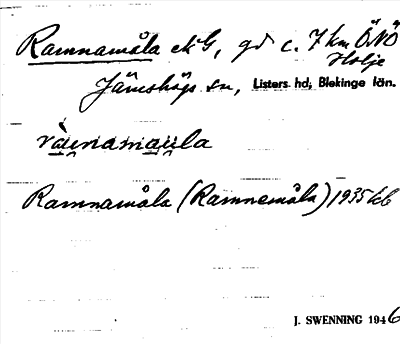 Ramnamåla ekG, gd c. 7 km ÖNÖ
Holje
Jämshögs sn, Listers hd, Blekinge län.
ràu̯namau̯la
Ramnamåla (Ramnemåla) 1935 kb
J. SWENNING 1946